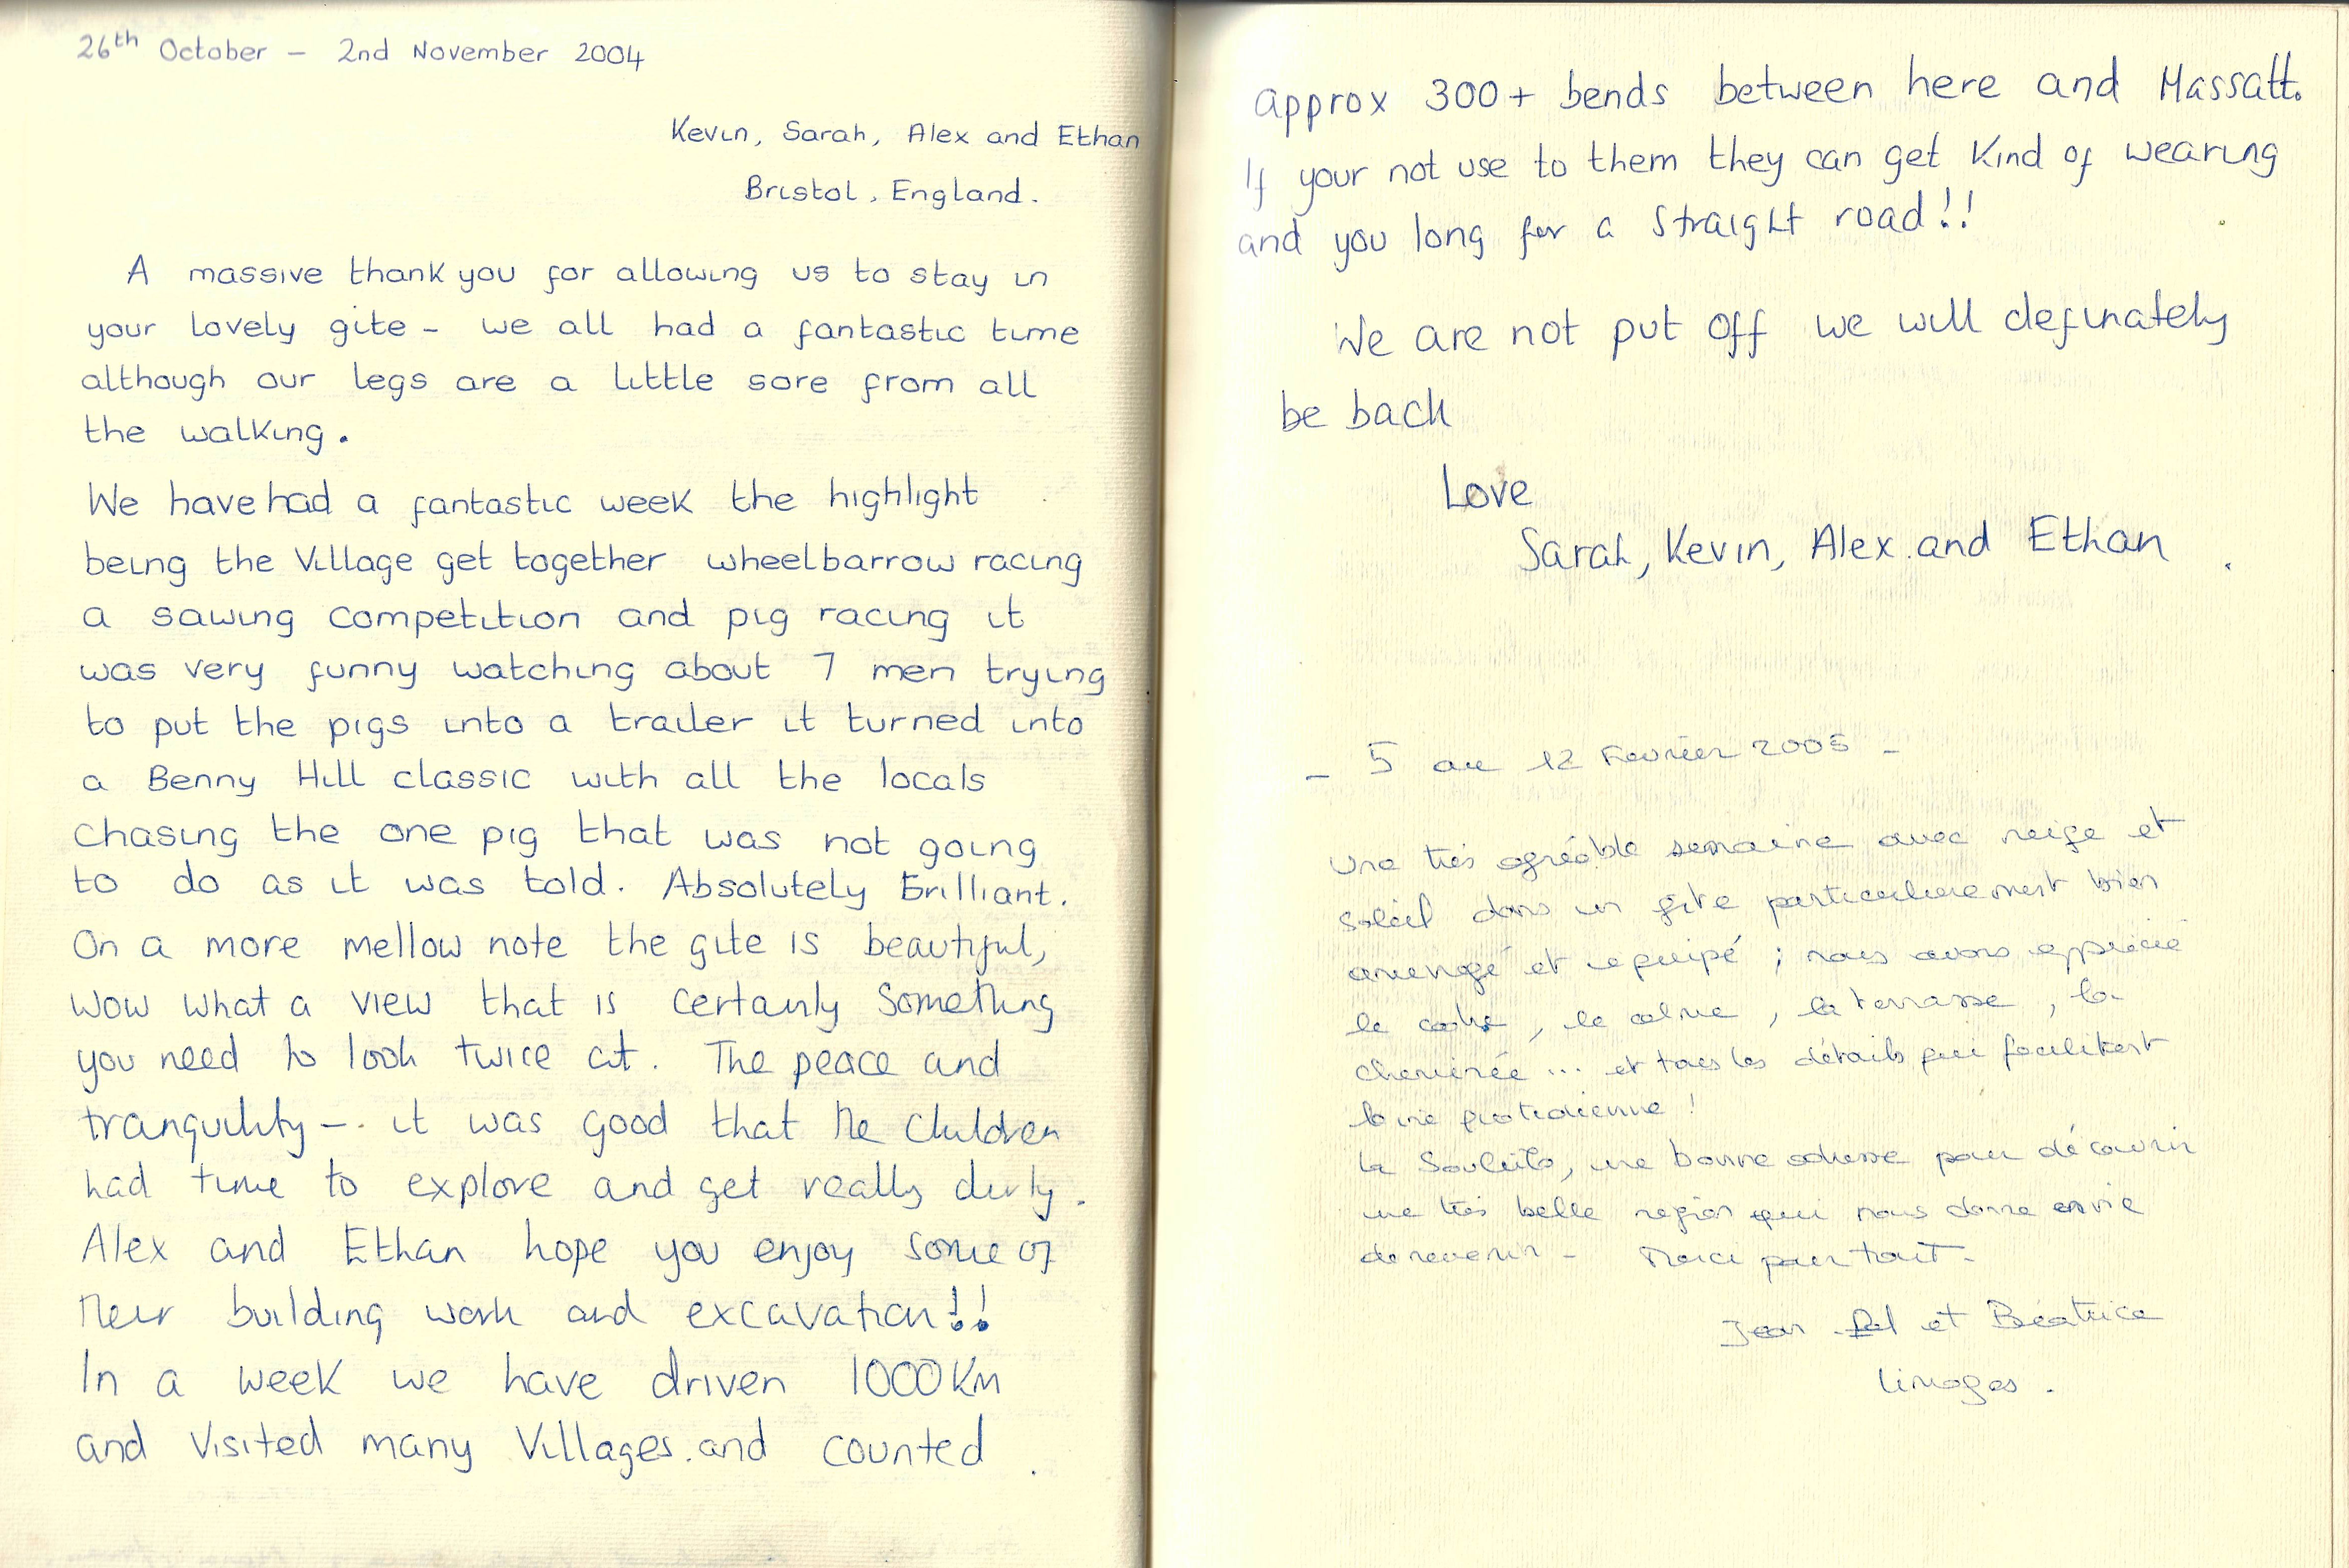 26th October – 2nd November 2004
Kevin, Sarah, Alex and Ethan
Bristol, England.
A massive thank you for allowing us to stay in
your lovely gite – we all had a fantastic time
although our legs are a little sore from all
the walking.
We have had a fantastic week the highlight
being the Village get together wheelbarrow racing
a sawing competition and pig racing it
was very funny watching about 7 men trying
to put the pigs into a trailer it turned into
a Benny Hill classic with all the locals
chasing the one pig that was not going
to do as it was told. Absolutely Brilliant.
On a more mellow note the gite is beautiful,
wow what a view that is certainly something
you need to look twice at. The peace and
tranquility – it was good that the children
had time to explore and get really dirty.
Alex and Ethan hope you enjoy some of
their building work and excavation!!
In a week we have driven 1000 Km
and visited many Villages and counted
approx 300+ bends between here and Massatt.
If your not use to them they can get kind of wearing
and you long for a straight road!!
We are not put off we will definately
be back
Love
Sarah, Kevin, Alex and Ethan
– 5 au 12 Fevrier 2005 –
Une très agréable semaine avec neige et
soleil dans un gîte particulièrement bien
aménagé et équipé ; nous avons apprécié
le cadre, le calme, la terrasse, la
cheminée ... et tous les détails qui facilitent
la vie quotidienne !
La Souleilo, une bonne adresse pour découvrir
une très belle région qui nous donne envie
de revenir – Merci pour tout.
Jean et Béatrice
Limoges.